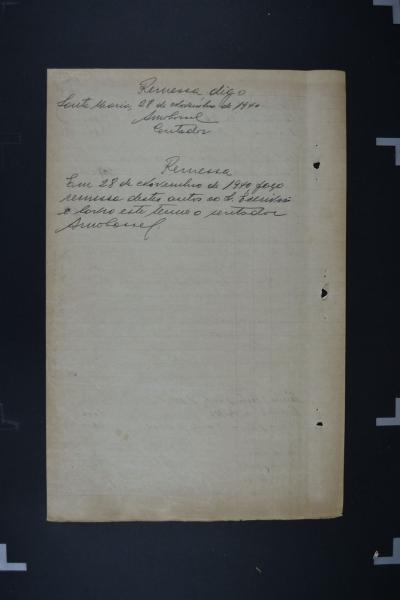 Remessa digo
Santa Maria, 28 de Novembro de 1940
Contador
Remessa
Em 28 de Novembro de 1940 faço
remessa destes autos ao S. Escrivão
e lavro este termo o contador